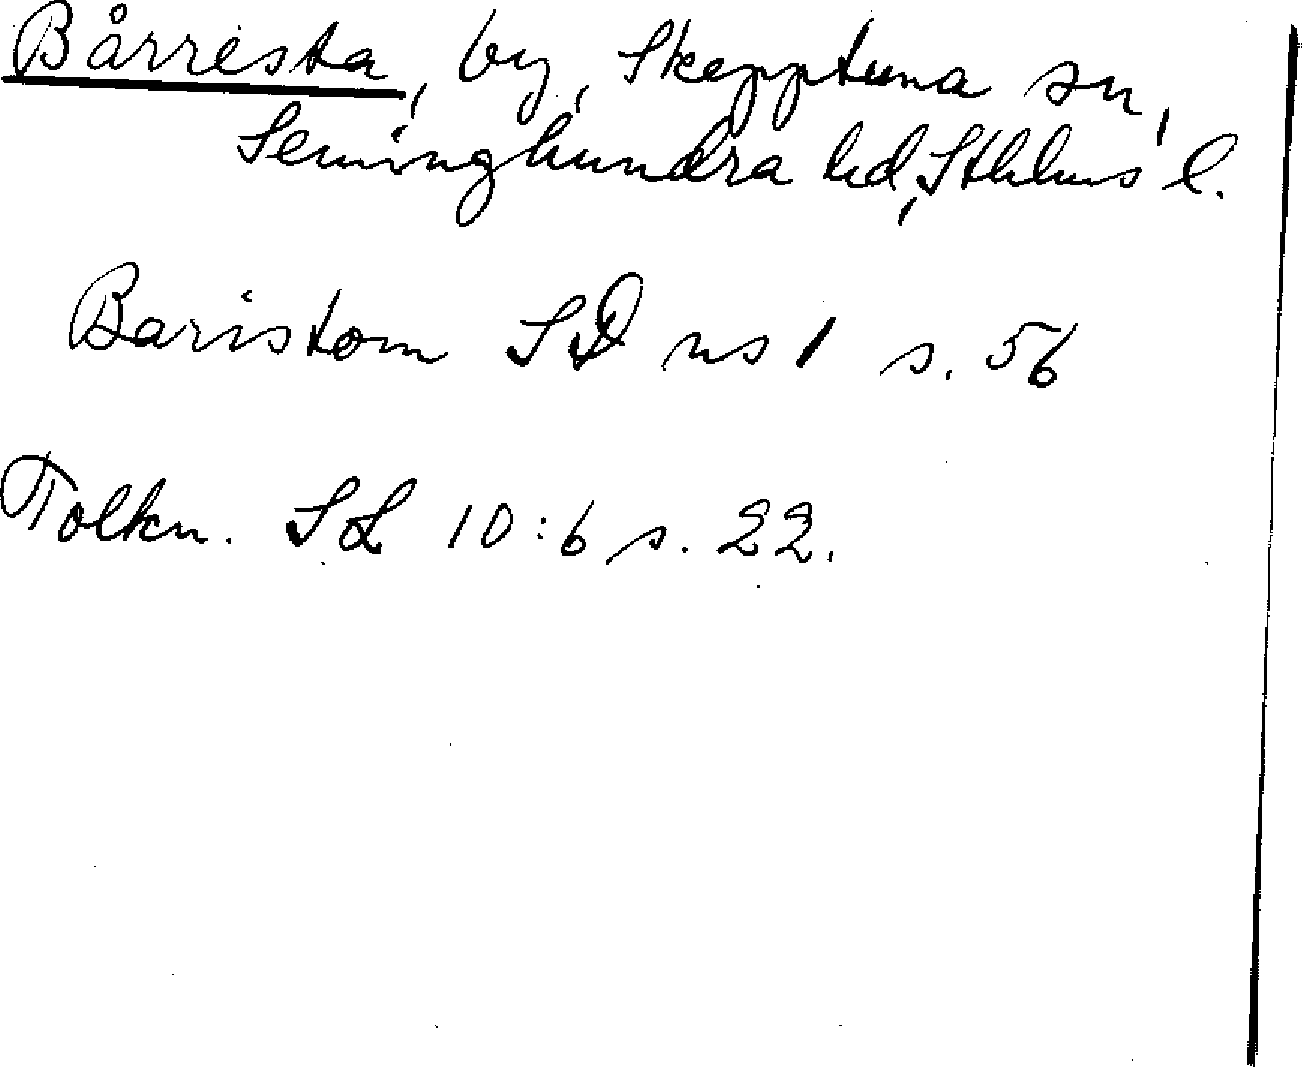 Bårresta, by, Skepptuna sn,
Seminghundra hd, Sthlms l.
Baristom SD ns 1 s. 56
Tolkn. SL 10:6 s. 22.